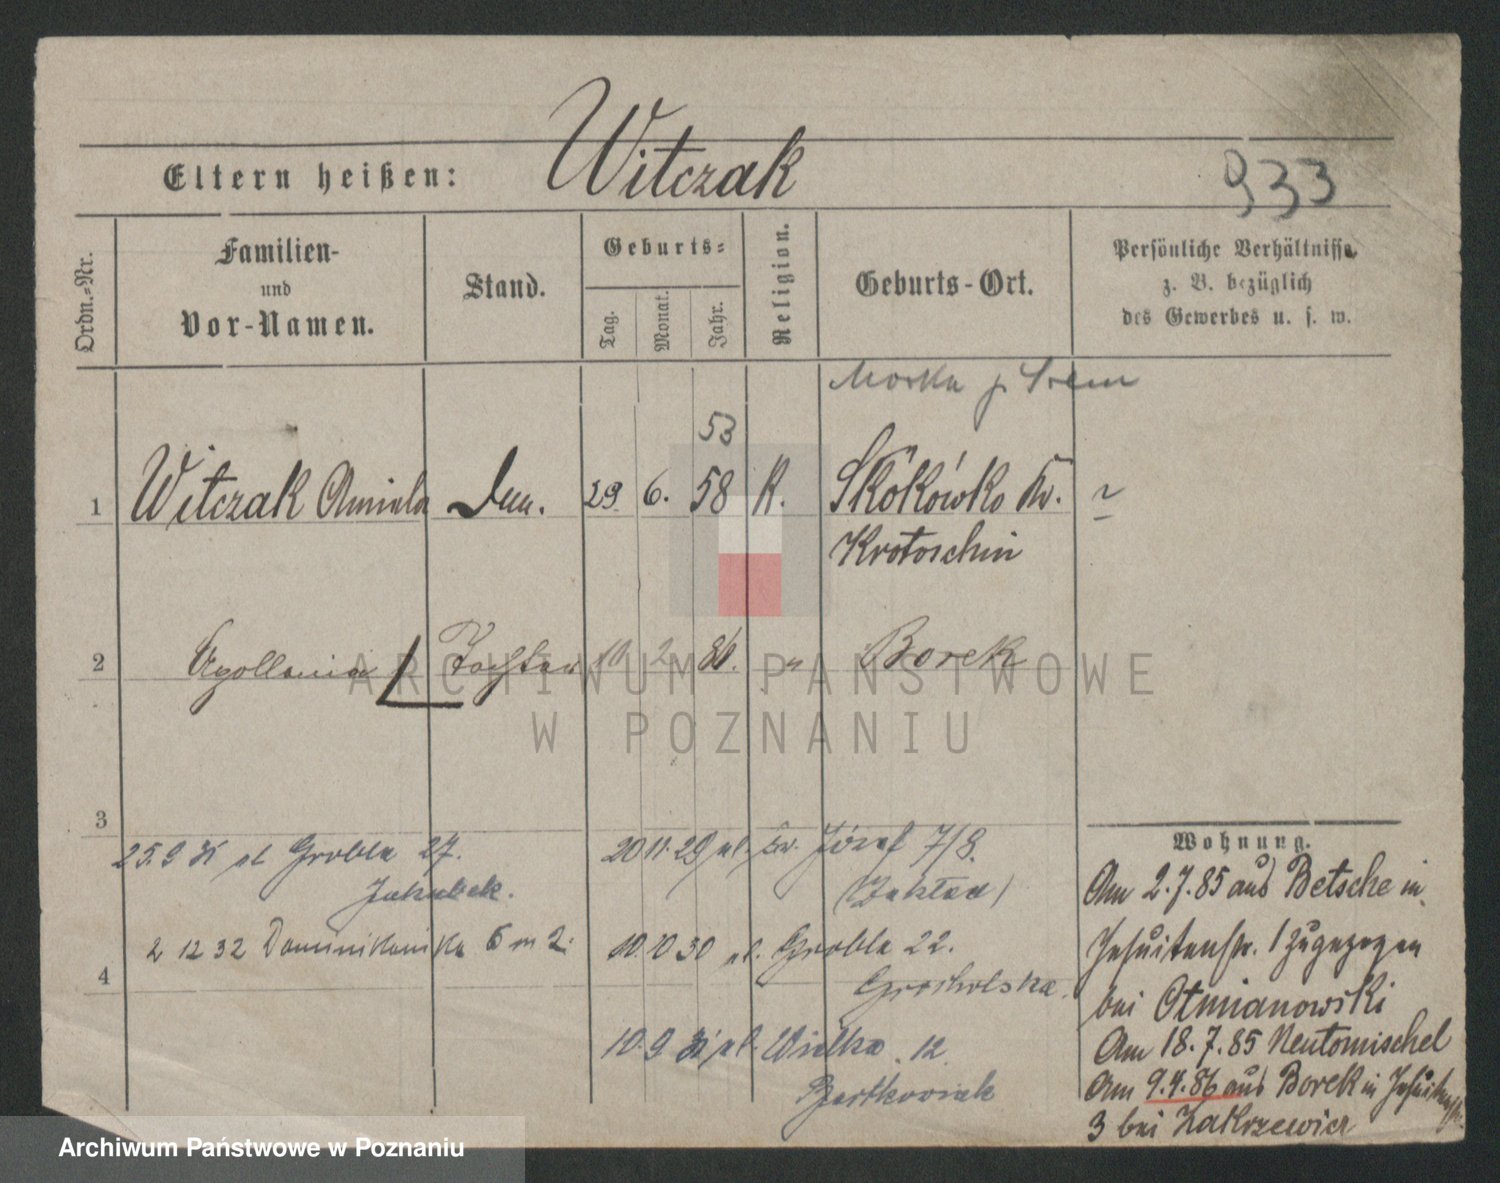 Eltern heißen: Witczak
933
Ordn.-Nr.
Familien-
und
Vor-Namen.
Stand.
Geburts-
Tag.
Monat.
Jahr.
Religion.
Geburts-Ort.
Persönliche Verhältnisse
z. B. bezüglich
des Gewerbes u. s. w.
53
1 Witczak 29 6. 58 K. Skokówko Kr.
Krotoschin
2 Apollonia Tochter 10 2 86. " Borek
ARCHIWUM PAŃSTWOWE
W POZNANIU
3
25.9 Grobla 27. 20 11. 29 ul. św. Józef 7/8.
Jakubek.
2 12 32 Dominikańska 6 m 2. 10.10 30 ul. Grobla 22.
4
Grocholska.
10.9 ul. Wielka 12
Bartkowiak
Wohnung.
Am 2.7.85 aus Betsche in
Jesuitenstr. 1 zugezogen
bei Otmianowski
Am 18.7.85 Neutomischel
Am 9.4.86 aus Borek in Jesuitenstr.
3 bei Zakrzewicz
Archiwum Państwowe w Poznaniu